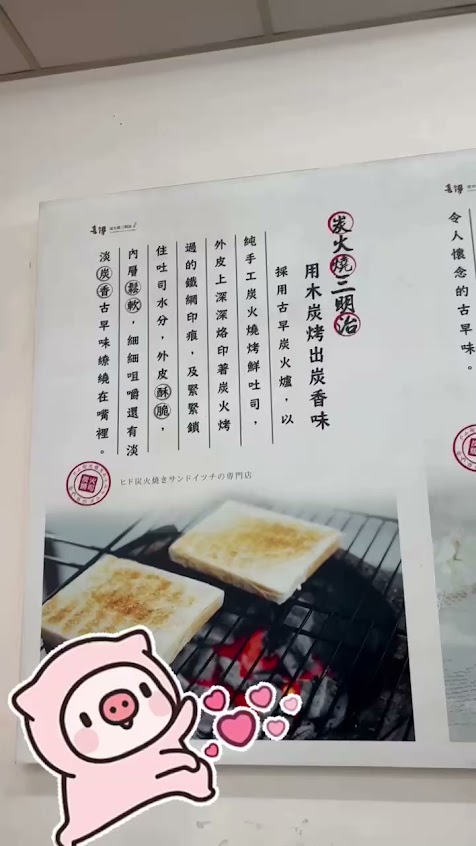 炭火燒三明治
用木炭烤出炭香味
採用古早炭火爐，以
純手工炭火燒烤鮮吐司，
外皮上深深烙印著炭火烤
過的鐵網印痕，及緊緊鎖
住吐司水分，外皮酥脆，
內層鬆軟，細細咀嚼還有淡
淡炭香古早味繚繞在嘴裡。
ヒド炭火燒きサンドイツチの專門店
令人懷念的古早味。